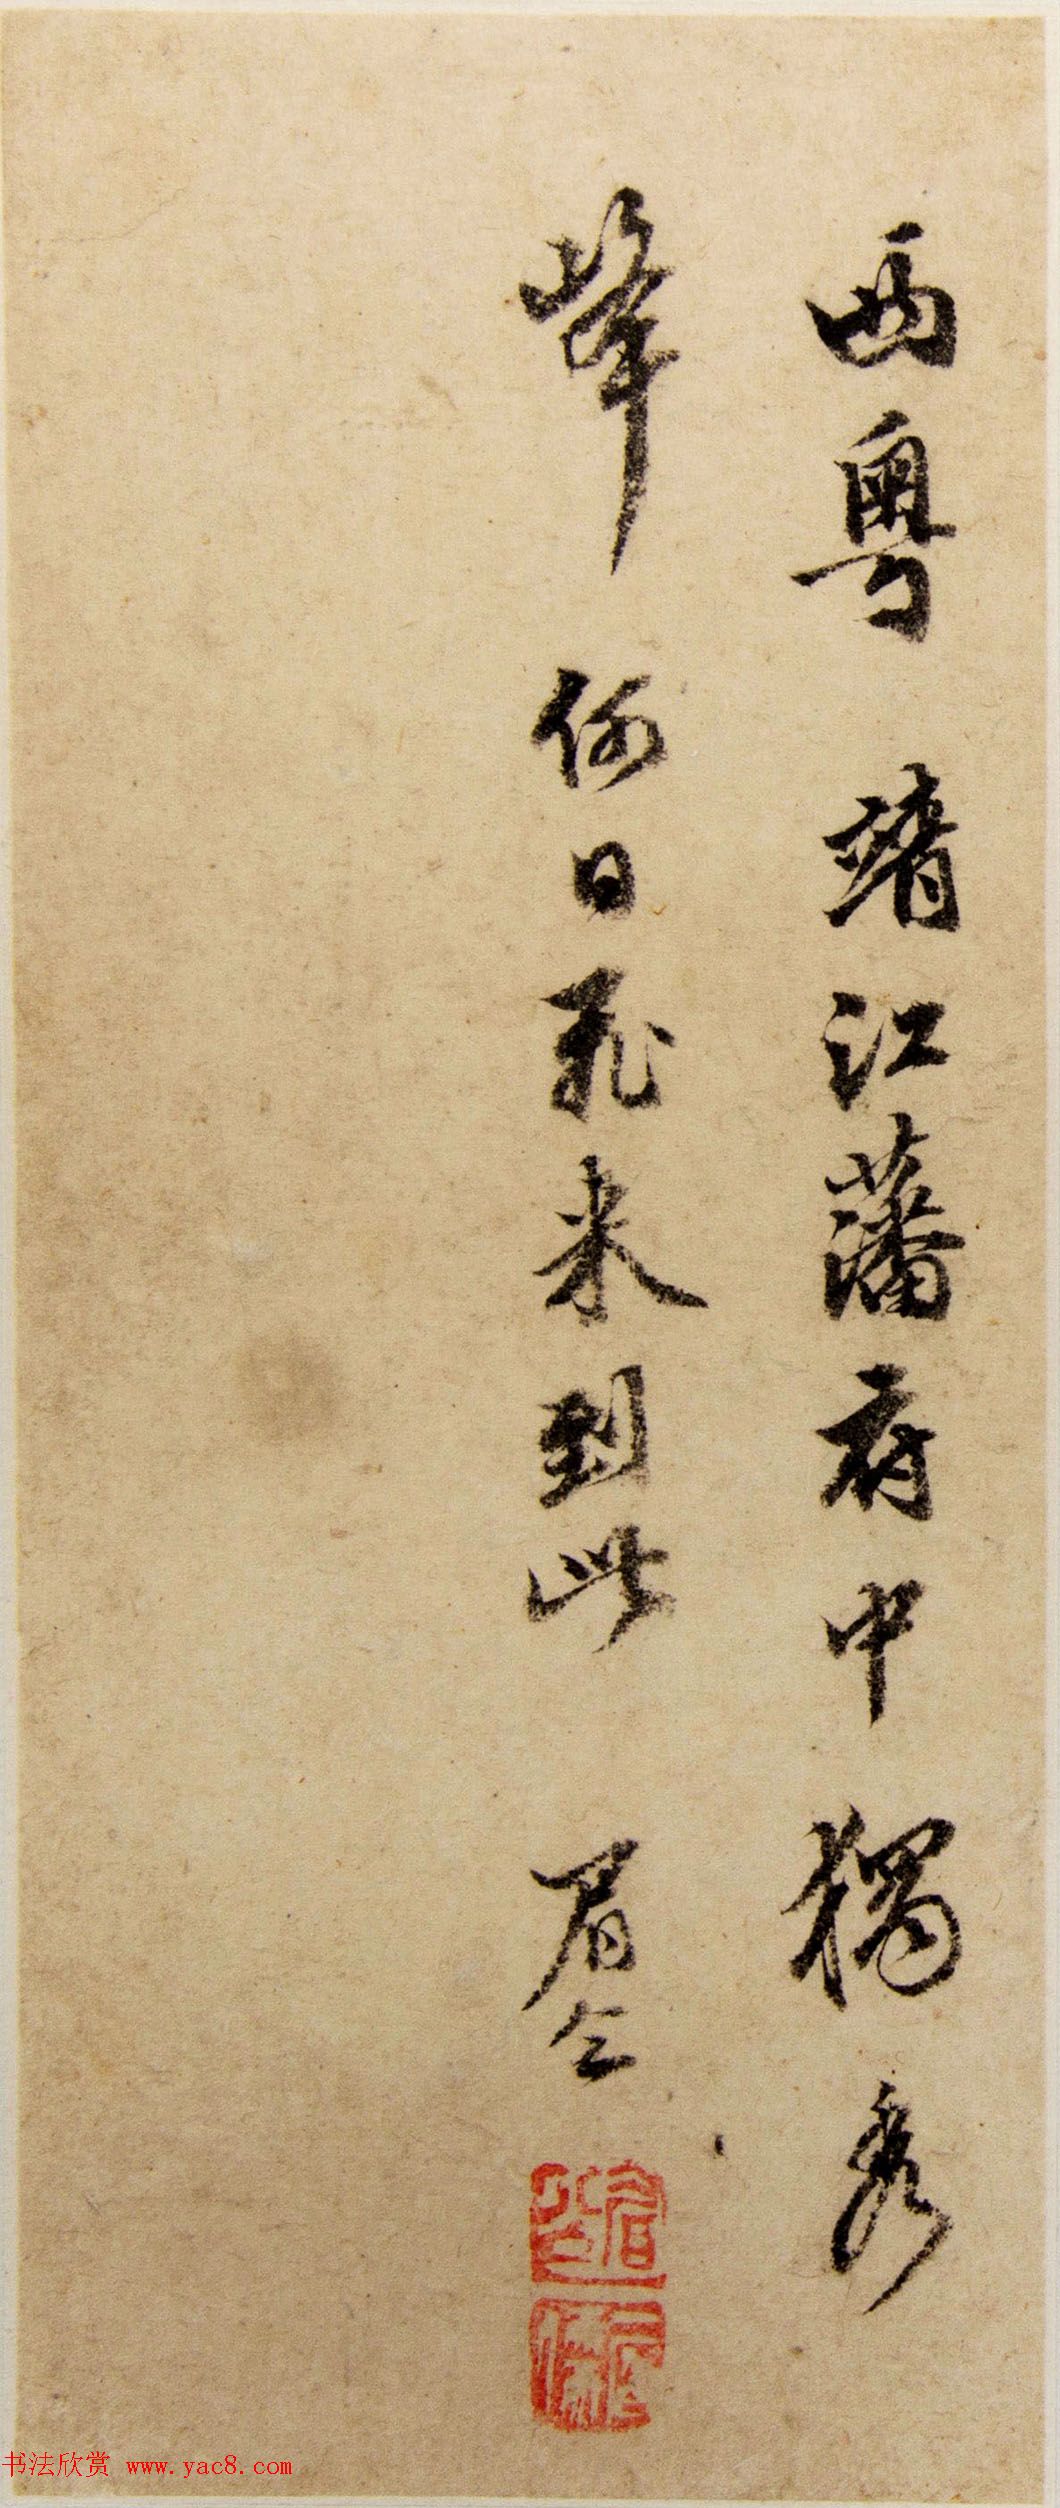 西粵 靖江藩府中 獨秀
峯 何日飛来到此 眉公
书法欣赏 www.yac8.com